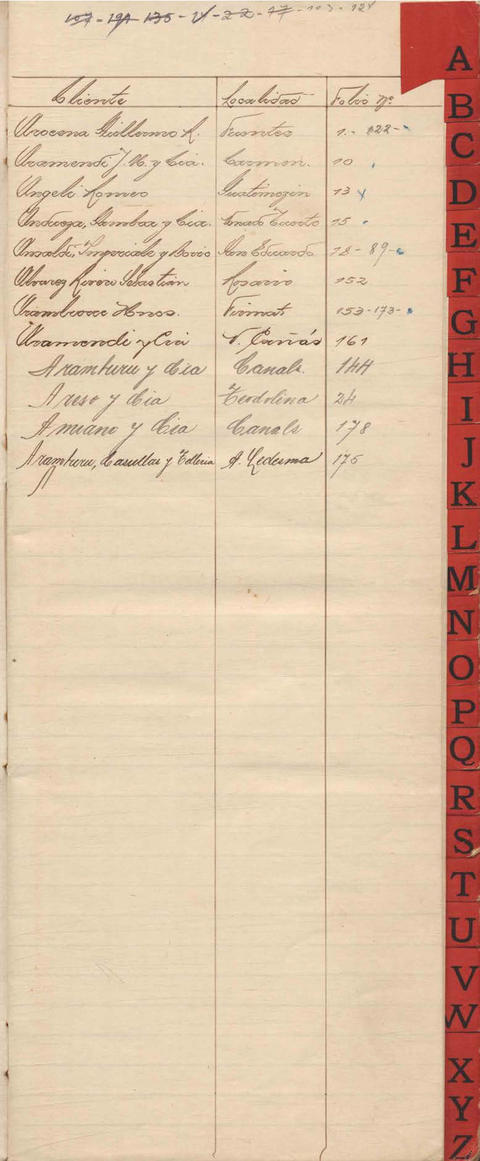 107-191-135-21-22-77-103-124
Cliente Localidad Folio nº
Arocena Guillermo R. Fuentes 1.- 122-
Aramendi J. M. y Cia. Carmen. 10
Angeli Romeo Guatimozin 13
y Cia. Venado Tuerto 15
Ansaldi, Imperiale y Bovio San Eduardo 18-89-
Alvarez Rivera Sebastián Rosario 152
Hnos. Firmat 153-173-
Aramendi y Cia V. Cañás 161
Aramburu y Cia Canals. 144
Aruso y Cia Teodolina 24
Amiano y Cia Canals 178
Aramburu, Casullas y Telleria A. Ledesma 175
A
B
C
D
E
F
G
H
I
J
K
L
M
N
O
P
Q
R
S
T
U
V
W
X
Y
Z